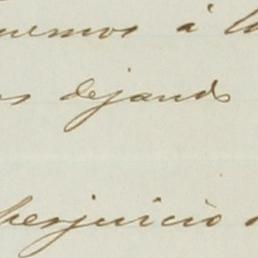 uemos á la
os dejando
perjuicio